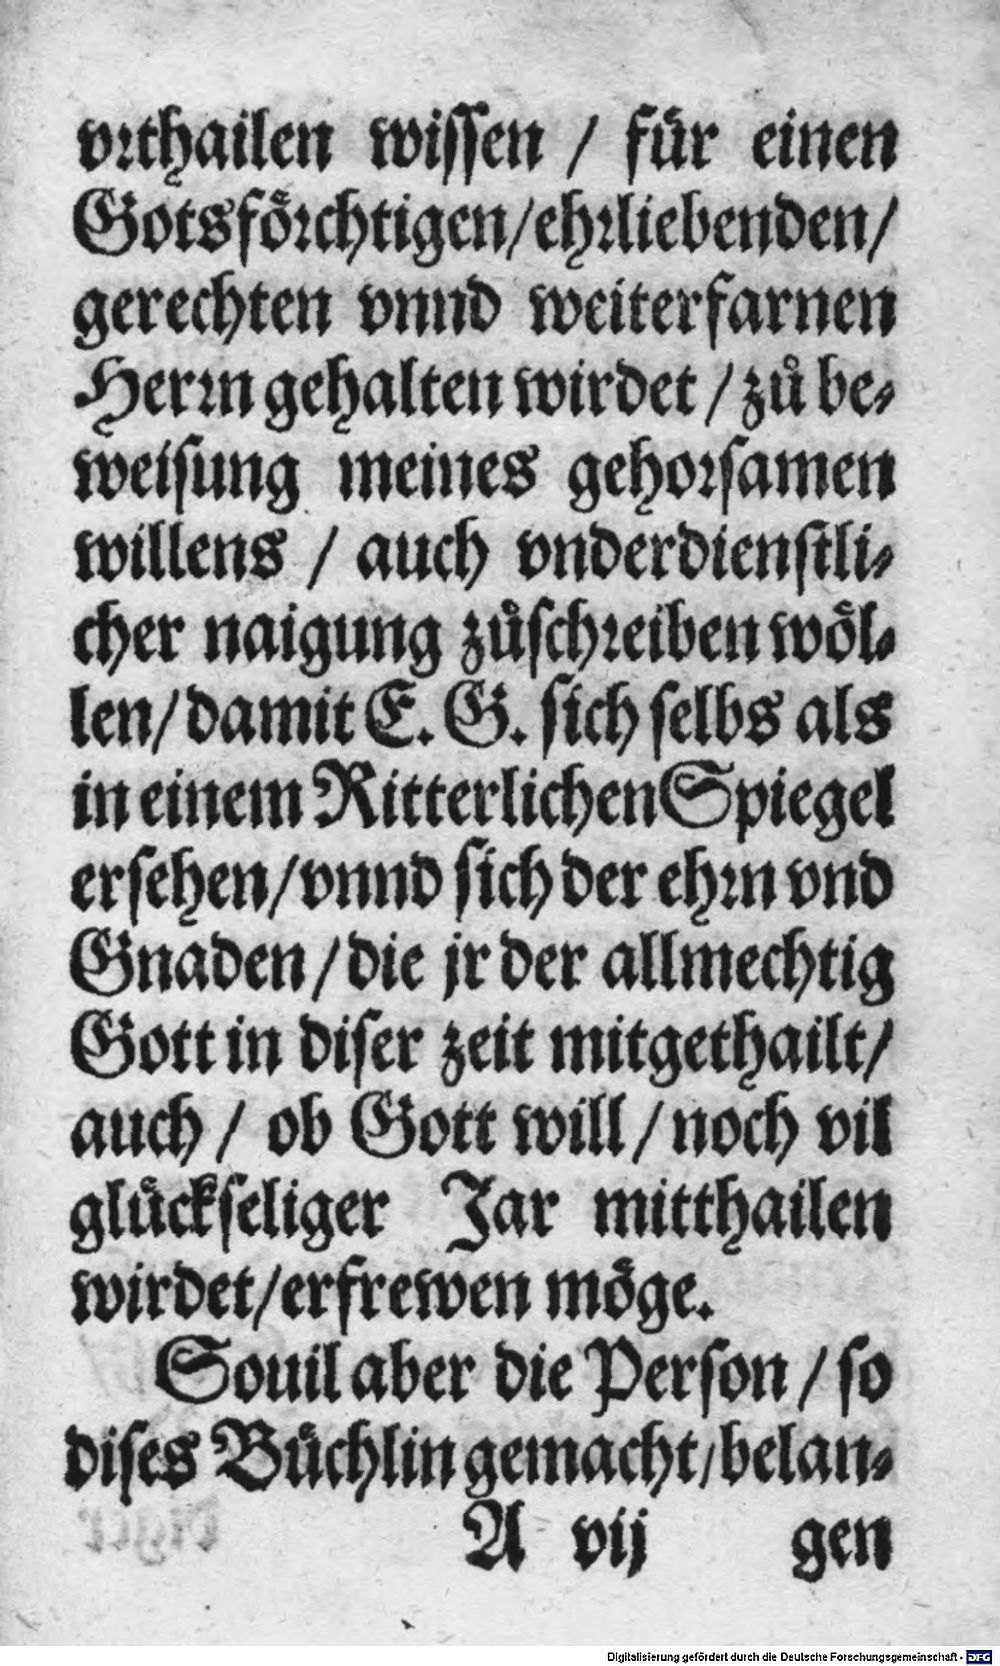 vrthailen wissen / für einen
Gotsförchtigen/ehrliebenden/
gerechten vnnd weiterfarnen
Herrn gehalten wirdet / zů be-
weisung meines gehorsamen
willens / auch vnderdienstli-
cher naigung zůschreiben wöl-
len/damit E. G. sich selbs als
in einem Ritterlichen Spiegel
ersehen/vnnd sich der ehrn vnd
Gnaden/die jr der allmechtig
Gott in diser zeit mitgethailt/
auch / ob Gott will/noch vil
glückseliger Jar mitthailen
wirdet/erfrewen möge.
Souil aber die Person / so
dises Büchlin gemacht/belan-
A vij gen
Digitalisierung gefördert durch die Deutsche Forschungsgemeinschaft - DFG